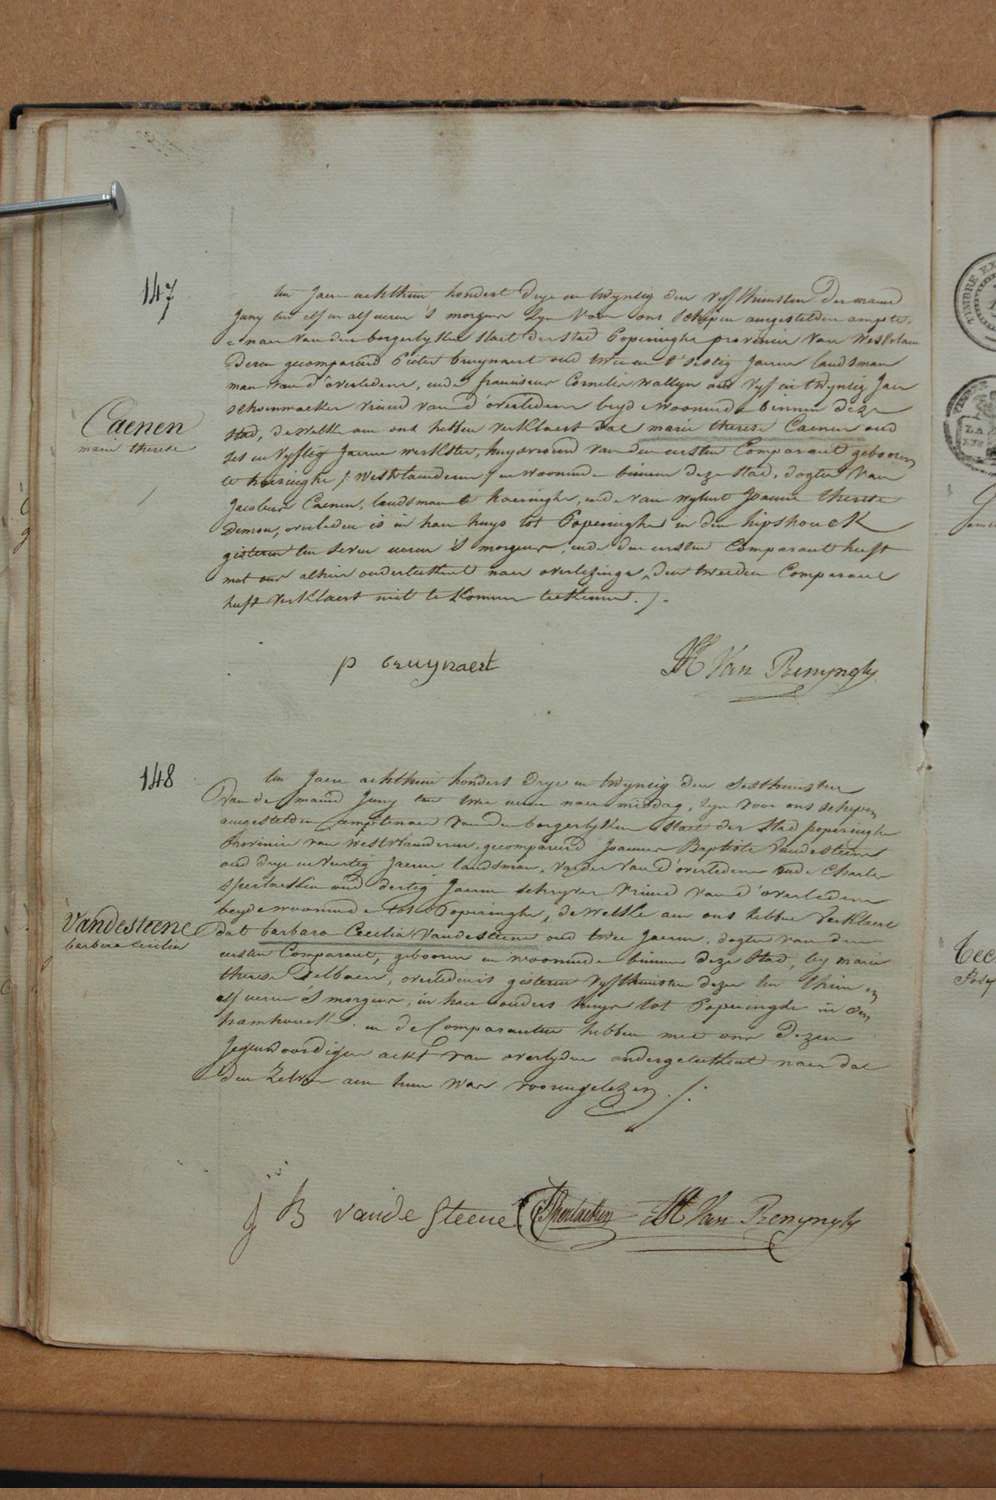 147
Caenen
marie therese
ten Jaere achthien hondert drye en twyntig den vyfthiensten der maend
Juny ten elf en alf ueren 's morgens zyn voor ons schepen aengestelden ampte-
naer van den borgerlyken staet der stad Poperinghe provincie van Westvlaen
deren gecompareerd Pieter Cruynaert oud twee en t'sestig Jaeren landsman
man van d'overledene, ende franciscus Cornelis Wallyn oud vyf en twyntig Jaer
schoenmaeker vriend van d'overledene beyde woonende binnen deze
stad, de welke aen ons hebben verklaert dat marie therese Caenen oud
ses en vyftig Jaeren werkster, huysvrouw van den eersten Comparant gebooren
te haringhe / Westvlaenderen / en woonende binnen deze stad, dogter van
Jacobus Caenen, landsman te haeringhe, ende van wylent Joanna therese
Demon, overleden is in haer huys tot Poperinghe in den hipshoeck
gisteren ten seven ueren 's morgens, ende den eersten Comparant heeft
met ons alhier onderteekent naer overlezinge, den tweeden Comparant
heeft verklaert niet te konnen teekenen. /.
p cruynaert
Van Renynghe
148
Vandesteene
barbara cecilia
ten Jaere achthien hondert drye en twyntig den sesthiensten
van de maend Juny ten twee ueren naer middag, zyn voor ons schepen
aengestelden amptenaer van den borgerlyken staet der stad poperinghe
Provincie van Westvlaenderen, gecompareerd Joannes Baptiste Vandesteene
oud drye en veertig Jaeren landsman, vader van d'overledene ende Charles
oud dertig Jaeren schryver vriend van d'overledene
beyde woonende tot Poperinghe, de welke aen ons hebben verklaert
dat barbara Cecilia Vandesteene oud twee Jaeren, dogter van den
eersten Comparant, gebooren en woonende binnen deze stad, by marie
therese Delbaere, overleden is gisteren vyfthiensten dezer ten thien en
alf ueren 's morgens, in haer ouders huys tot Poperinghe in den
hamhoeck. en de Comparanten hebben met ons dezen
Jegenwoordigen ackt van overlyden ondergeteekent naer dat
den zelven aen hun was voorengelezen. /.
J B vande Steene
Van Renynghe
TIMBRE